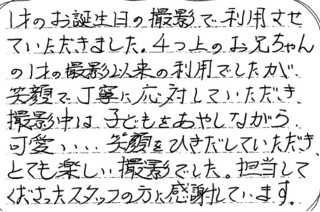 1才のお誕生日の撮影で利用させ
ていただきました。4つ上のお兄ちゃん
の1才の撮影以来の利用でしたが、
笑顔で丁寧に応対していただき、
撮影中は子どもをあやしながら
可愛いい笑顔をひきだしていただき、
とても楽しい撮影でした。担当して
くださったスタッフの方に感謝しています。